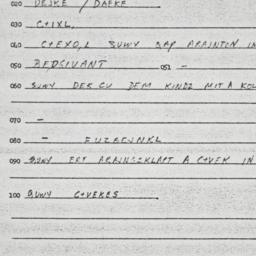 020 DEJKE / DAFKE
030 C+IXL,
040 C+EXO,L BUWY BAP ARAINTON IN
050 BEDSIVANT 051 -
060 BUWY DER GU DEM KIND2 MIT A KOL
070 -
080 - FUZREJNKL
090 BUWY ERT ARAINGEKLAPT A C+VEK IN
100 BUWY C+VEKES